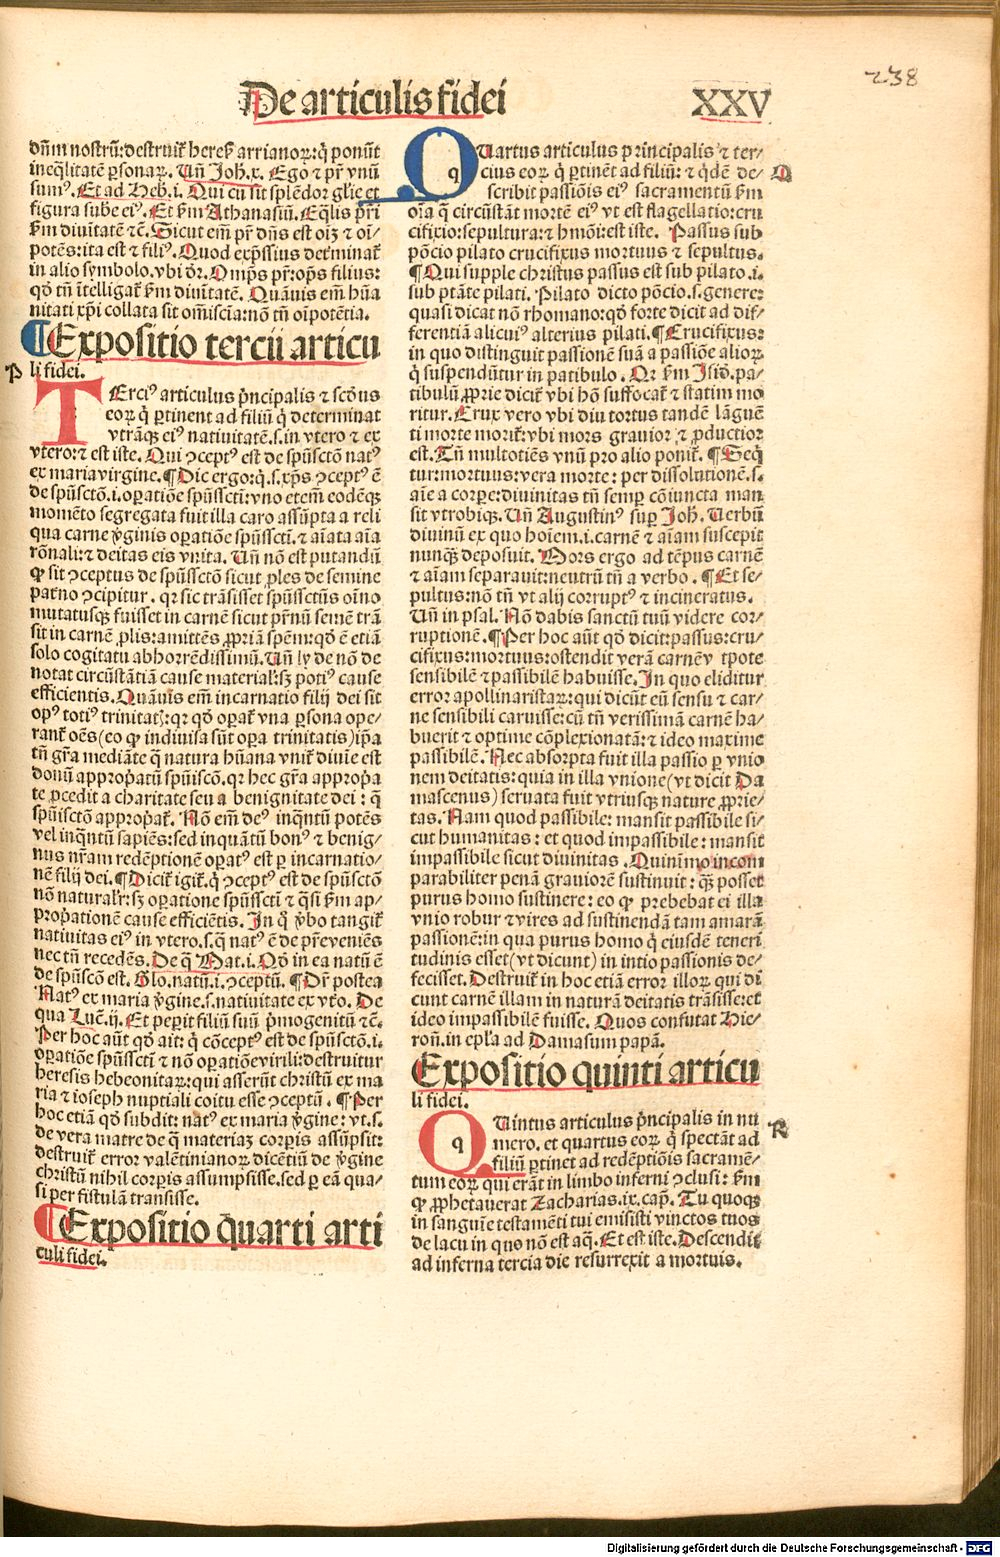 238
De articulis fidei
XXV
dñm nostrũ: destruit̃ heres̃ arrianoꝝ: q̃ ponũt
ineq̃litatẽ ꝑsonaꝝ. Uñ Joh̃.x. Ego ⁊ pr̃ vnũ
sumꝰ. Et ad Heb̃.i. Qui cũ sit splẽdor glie et
figura sub̃e eiꝰ. Et ẜm Athanasiũ. Eq̃lis pr̃i
ẜm diuĩtatẽ ⁊c̃. Sicut em̃ pr̃ dñs est oĩꝫ ⁊ oĩ-
potẽs: ita est ⁊ filiꝰ. Quod exp̃ssius det̃minat̃
in alio symbolo. vbi dr̃. Omp̃s pr̃: op̃s filius:
qd̃ tñ ĩtelligat̃ ẜm diuĩtatẽ. Quãuis em̃ hũa
nitati xp̃i collata sit om̃iscia: nõ tñ oĩpotẽtia.
¶ Expositio tercii articu
P
li fidei.
TErciꝰ articulus p̃ncipalis ⁊ sc̃dus
eoꝝ q̃ ꝑtinent ad filiũ q̃ determinat
vtrãqꝫ eiꝰ natiuitatẽ.s.in vtero ⁊ ex
vtero: ⁊ est iste. Qui ↄceptꝰ est de spũsctõ natꝰ
ex maria virgine. ¶ Dic ergo: q̃.s.xp̃s ↄceptꝰ ẽ
de spũsctõ.i.oꝑatiõe spũsscti: vno etem̃ eodẽqꝫ
momẽto segregata fuit illa caro assũpta a reli
qua carne ṽginis oꝑatiõe spũsscti. ⁊ aĩata aĩa
rõnali: ⁊ deitas eis vnita. Uñ nõ est putandũ
ꝙ sit ↄceptus de spũsctõ sicut ꝓles de semine
pat̃no ↄcipitur. qꝛ sic trãsisset spũssctũs oĩno
mutatusqꝫ fuisset in carnẽ sicut pr̃nũ semẽ trã
sit in carnẽ ꝓlis: amittẽs ꝓpriã spẽm: qd̃ ẽ etiã
solo cogitatu abhorrẽdissimũ. Uñ ly de nõ de
notat circũstãtiã cause materiał: sꝫ potiꝰ cause
efficientis. Quãuis em̃ incarnatio filij dei sit
opꝰ totiꝰ trinitaṫ: qꝛ qd̃ oꝑat̃ vna ꝑsona ope-
rant̃ oẽs (eo ꝙ indiuisa sũt oꝑa trinitatis) ip̃a
tñ gr̃a mediãte q̃ natura hũana vnit̃ diuie est
donũ appropatũ spũiscõ. qꝛ hec gr̃a appropa
te ꝓcedit a charitate seu a benignitate dei: q̃
spũisctõ appropat̃. Nõ em̃ deꝰ inq̃ntũ potẽs
vel inq̃ntũ sapiẽs: sed inquãtũ bonꝰ ⁊ benig-
nus nr̃am redẽptionẽ oꝑatꝰ est ꝑ incarnatio-
nẽ filij dei. ¶ Dicit̃ igit̃. q̃ ↄceptꝰ est de spũsctõ
nõ naturałr: sꝫ oꝑatione spũsscti ⁊ q̃si ẜm ap-
propationẽ cause efficiẽtis. In q̃ ṽbo tangit̃
natiuitas eiꝰ in vtero.s.q̃ natꝰ ẽ de pr̃e veniẽs
nec tñ recedẽs. De q̃ Mat.i. Qd̃ in ea natũ ẽ
de spũscõ est. Glo. natũ.i.ↄceptũ. ¶ Dr̃ postea
Natꝰ ex maria ṽgine.s.natiuitate ex vt̃o. De
qua Luc̃.ij. Et peꝑit filiũ suũ p̃mogenitũ ⁊c̃.
Per hoc aũt qd̃ ait: q̃ cõceptꝰ est de spũsctõ.i.
oꝑatiõe spũsscti ⁊ nõ oꝑatiõe virili: destruitur
heresis hebeonitaꝝ: qui asserũt christũ ex ma
ria ⁊ ioseph nuptiali coitu esse ↄceptũ. ¶ Per
hoc etiã qd̃ subdit: natꝰ ex maria ṽgine: vt.s.
de vera matre de q̃ materiaꝫ corꝑis assũpsit:
destruit̃ error valẽtinianoꝝ dicẽtiũ de ṽgine
christũ nihil corꝑis assumpsisse. sed ꝑ eã qua-
si per fistulã transisse.
¶ Expositio q̃uarti arti
culi fidei.
QUartus articulus principalis ⁊ ter-
cius eoꝝ q̃ ꝑtinẽt ad filiũ: ⁊ q̃dẽ de-
Q
scribit passiõis eiꝰ sacramentũ ẜm
oĩa q̃ circũstãt mortẽ eiꝰ vt est flagellatio: cru
cifixio: sepultura: ⁊ hmõi: est iste. Passus sub
põcio pilato crucifixus mortuus ⁊ sepultus.
¶ Qui supple christus passus est sub pilato.i.
sub ptãte pilati. Pilato dicto põcio.s.genere:
quasi dicat nõ rhomano: qd̃ forte dicit ad dif-
ferentiã alicuiꝰ alterius pilati. ¶ Crucifixus:
in quo distinguit passionẽ suã a passiõe alioꝝ
q̃ suspendũtur in patibulo. Qꝛ ẜm Isid̃. pa-
tibulũ ꝓprie dicit̃ vbi hõ suffocat̃ ⁊ statim mo
ritur. Crux vero vbi diu tortus tandẽ lãguẽ
ti morte morit̃: vbi mors grauior ⁊ ꝓductior
est. Tñ multotiẽs vnũ pro alio ponit̃. ¶ Seq̃
tur: mortuus: vera morte: per dissolutionẽ.s.
aĩe a corꝑe: diuinitas tñ semꝑ cõiuncta man
sit vtrobiqꝫ. Uñ Augustinꝰ suꝑ Joh̃. Uerbũ
diuinũ ex quo hoĩem.i.carnẽ ⁊ aĩam suscepit
nunqꝫ deposuit. Mors ergo ad tẽpus carnẽ
⁊ aĩam separauit: neutrũ tñ a verbo. ¶ Et se-
pultus: nõ tñ vt alij corruptꝰ ⁊ incineratus.
Uñ in psal. Nõ dabis sanctũ tuũ videre cor-
ruptionẽ. ¶ Per hoc aũt qd̃ dicit: passus: cru-
cifixus: mortuus: ostendit verã carnẽ v tpote
sensibilẽ ⁊ passibilẽ habuisse. In quo eliditur
error apollinaristaꝝ: qui dicũt eũ sensu ⁊ car-
ne sensibili caruisse: cũ tñ verissimã carnẽ ha-
buerit ⁊ optime cõplexionatã: ⁊ ideo maxime
passibilẽ. Nec absorpta fuit illa passio ꝑ vnio
nem deitatis: quia in illa vnione (vt dicit Da
mascenus) seruata fuit vtriusqꝫ nature ꝓprie-
tas. Nam quod passibile: mansit passibile si-
cut humanitas: et quod impassibile: mansit
impassibile sicut diuinitas. Quinĩmo incom
parabiliter penã grauiorẽ sustinuit: q̃ꝫ posset
purus homo sustinere: eo ꝙ prebebat ei illa
vnio robur ⁊ vires ad sustinendã tam amarã
passionẽ: in qua purus homo q̃ eiusdẽ teneri
tudinis esset (vt dicunt) in intio passionis de-
fecisset. Destruit̃ in hoc etiã error illoꝝ qui di
cunt carnẽ illam in naturã deitatis trãsisse: et
ideo impassibilẽ fuisse. Quos confutat Hie-
roñ. in epl̃a ad Damasum papã.
Expositio quinti articu
li fidei.
QUintus articulus p̃ncipalis in nu
R
mero. et quartus eoꝝ q̃ spectãt ad
filiũ ꝑtinet ad redẽptiõis sacramẽ-
tum eoꝝ qui erãt in limbo inferni ↄclusi: ẜm
ꝙ ꝓphetauerat Zacharias.ix.cap̃. Tu quoqꝫ
in sanguĩe testamẽti tui emisisti vinctos tuos
de lacu in quo nõ est aq̃. Et est iste. Descendit
ad inferna tercia die resurrexit a mortuis.
Digitalisierung gefördert durch die Deutsche Forschungsgemeinschaft - DFG